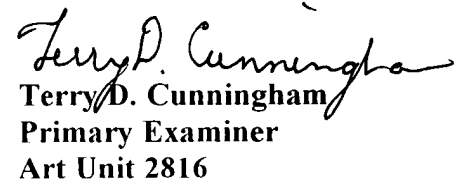 Terry D. Cunningham
Terry D. Cunningham
Primary Examiner
Art Unit 2816